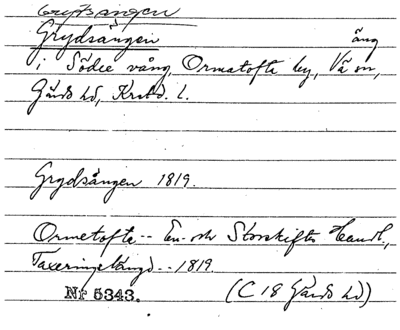 Grydsängen
Grydsängen äng
i Södre vång, Ormatofta by, Vä sn,
Gärds hd, Krist. l.
Grydsängen 1819.
Ormetofta -- En- och Storskiftes Handl.,
Taxeringslängd -- 1819.
Nr 5343. (C 18 Gärds hd)